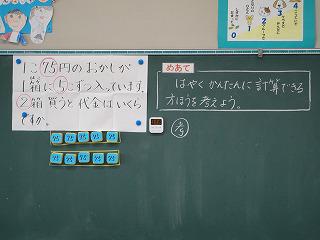 1こ75円のおかしが
1箱に5こずつ入っています。
2箱買うと代金はいくら
ですか。
めあて
はやくかんたんに計算できる
方ほうを考えよう。
75 75 75 75 75
75 75 75 75 75